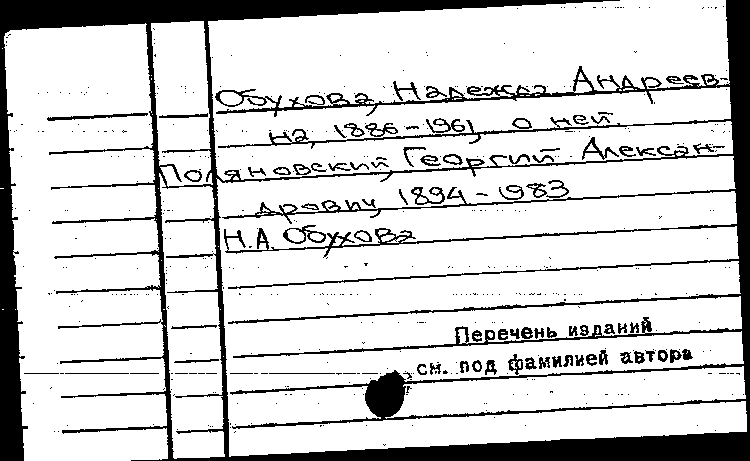 Обухова, Надежда Андреев-
на, 1886-1961, о ней.
Поляновский, Георгий Алексан-
дрович, 1894-1983
Н.А. Обухова
Перечень изданий
см. под фамилией автора